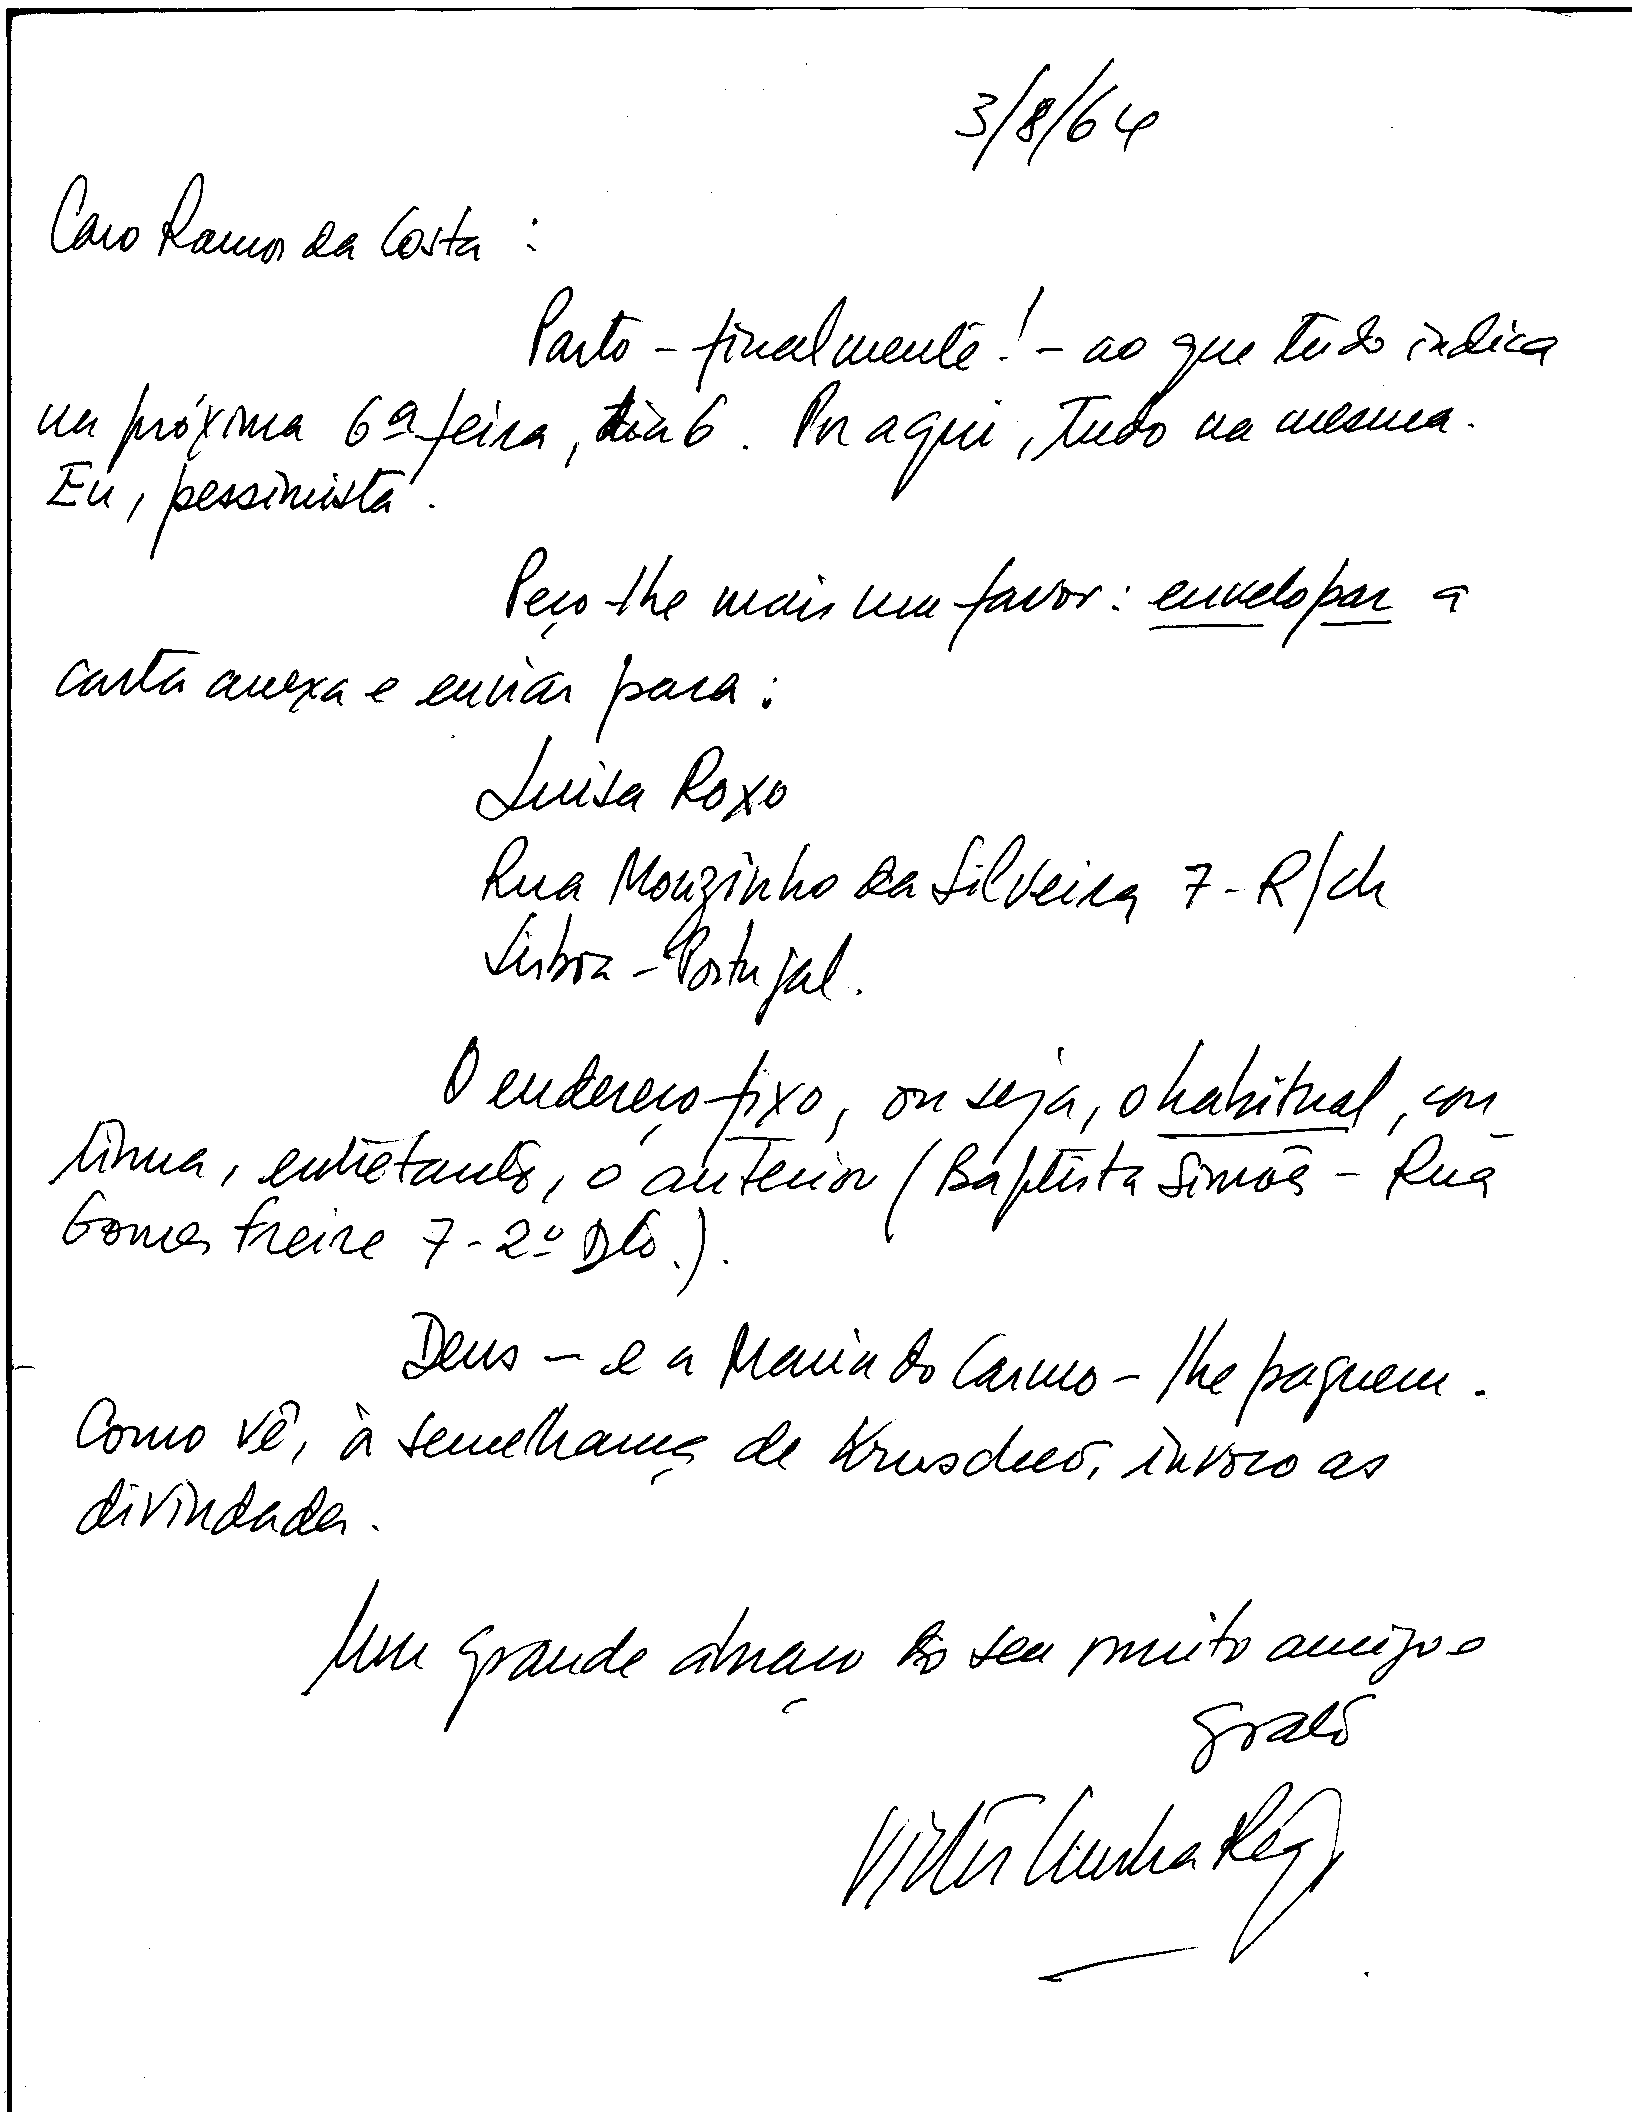 3/8/64
Caro Ramos da Costa :
Parto - finalmente! - ao que tudo indica
na próxima 6ª feira, dia 6. Por aqui, tudo na mesma.
Eu, pessimista.
Peço-lhe mais um favor: envelopar a
carta anexa e enviar para:
Luisa Roxo
Rua Mouzinho da Silveira 7 - R/ch
Lisboa - Portugal.
O endereço fixo, ou seja, o habitual, con
tinua, entretanto, o anterior (Baptista Simões - Rua
Gomes Freire 7 - 2º Dto.).
Deus - e a Maria do Carmo - lhe paguem.
Como vê, à semelhança de Kruschev, invoco as
divindades.
Um grande abraço do seu muito amigo e
grato
Victor Cunha Rego